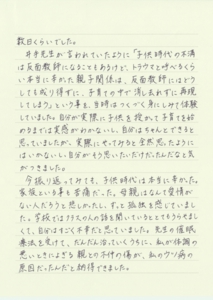 数日くらいでした。
井手先生が言われていたように「子供時代の不満
は反面教師になることもあるけど、トラウマと呼べるくら
い本当に辛かった親子関係は、反面教師にはどう
しても成り得ずに、子育ての中で消去れずに再現
してしまう」という事を、当時はつくづく身にしみて体験
していました。自分が実際に子供を授かって子育てを始
めるまでは実感がわかないし、自分はちゃんとできると
思っていましたが、実際に、やってみると全然思ったように
はいかないし、自分がそう思いたいだけだったんだなと気
がつきました。
今振り返ってみても、子供時代は本当に辛かった。
家族という事も苦痛だった。母親はなんて愛情が
ない人だろうと悲しかったし、ずっと孤独を感じていまし
た。学校ではクラスの人の話を聞いているととてもうらやまし
くて、自分はすごく不幸だと思っていました。先生の催眠
療法を受けて、だんだん治っていくうちに、私が体調の
悪いときによぎる親との不仲の傷が、私のウツ病の
原因だったんだと納得できました。